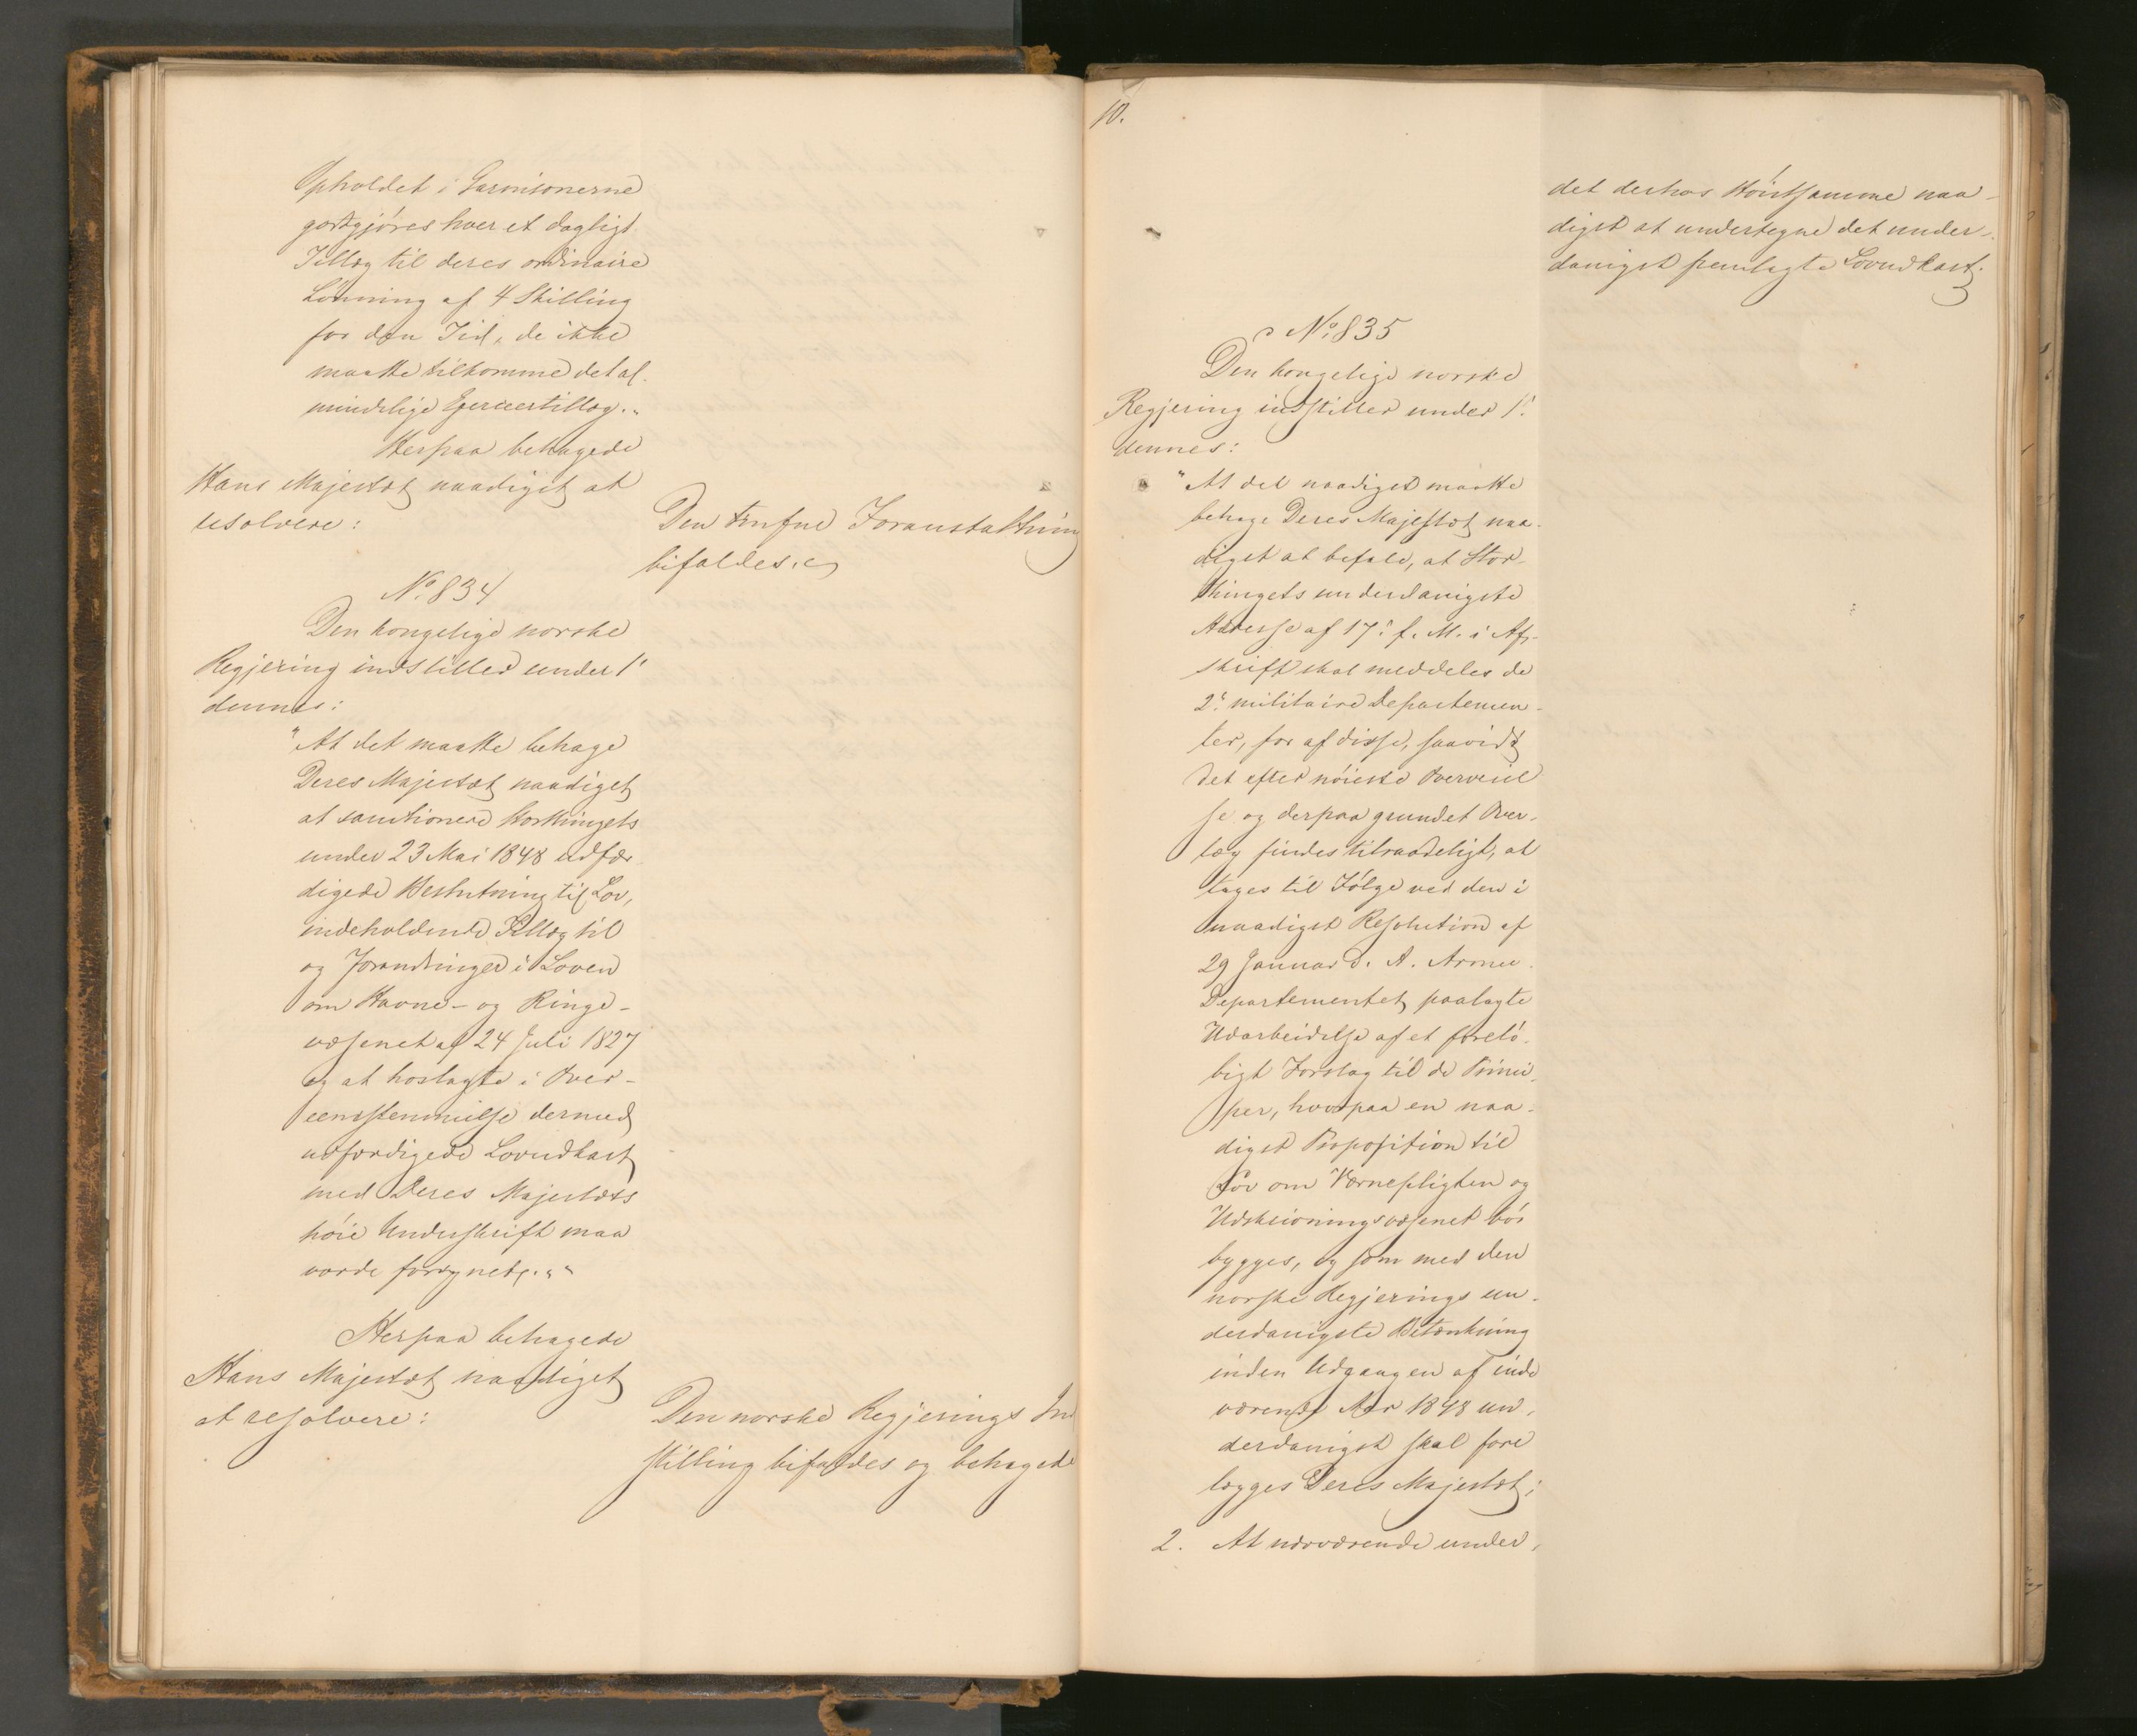 Opholdet i Garnisonerne
godtgjöres hver et dagligt
Tillæg til deres ordinaire
Lönning af 4 Skilling
for den Tid, de ikke
maatte tilkomme det al-
mindelige Exerceertillæg."
Herpaa behagede
Hans Majestæt naadigst at
resolvere:
Den trufne Foranstaltning
bifaldes.
No. 834
Den kongelige norske
Regjering indstiller under 1e
dennes:
"At det maatte behage
Deres Majestæt naadigst
at sanctionere Storthingets
under 23 Mai 1848 udfær-
digede Beslutning til Lov,
indeholdende Tillæg til
og Forandringer i Loven
om Havne- og Ringe-
væsenet af 24 Juli 1827
og at hoslagte i Over-
eensstemmelse dermed
udfærdigede Lovudkast
med Deres Majestæts
höie Underskrift maa
vorde forsynet."
Herpaa behagede
Hans Majestæt naadigst
at resolvere:
Den norske Regjerings Ind
stilling bifaldes og behagede
10.
det derhos Höistsamme naa-
digst at undertegne det under-
danigst fremlagte Lovudkast.
No. 835
Den kongelige norske
Regjering indstiller under 1e
dennes:
"At det naadigst maatte
behage Deres Majestæt naa-
digst at befale, at Stor-
thingets underdanigste
Adresse af 17e f. M. i Af-
skrift skal meddeles de
2e militaire Departemen-
ter, for af disse, saavidt
det efter nöieste Overveiel
se og derpaa grundet Over-
læg findes tilraadeligt, at
tages til Fölge ved den i
naadigst Resolution af
29 Januar d. A. Armee-
Departementet paalagte
Udarbeidelse af et forelö-
bigt Forslag til de Princi-
per, hvorpaa en naa-
digst Proposition til
Lov om Værnepligten og
Udskrivningsvæsenet bör
bygges, og som med den
norske Regjerings un-
derdanigste Betænkning
inden Udgangen af inde
værende Aar 1848 un-
derdanigst skal fore
lægges Deres Majestæt;
2. At nærværende under-